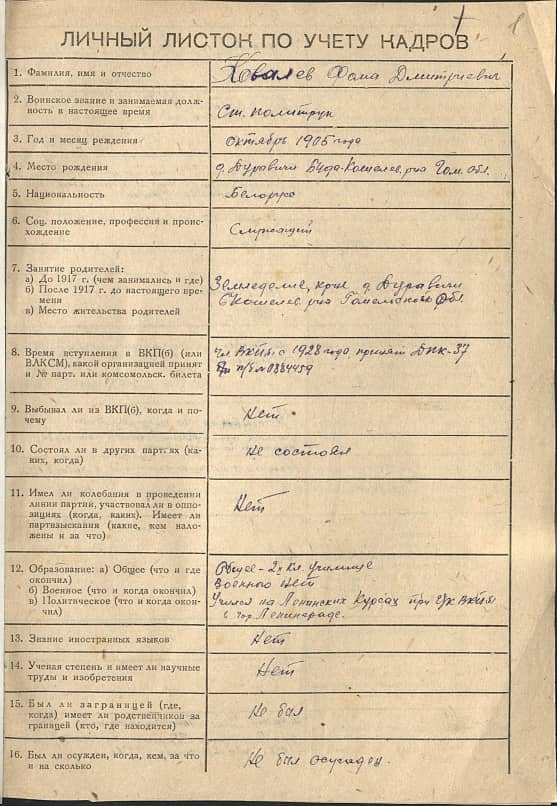 1
ЛИЧНЫЙ ЛИСТОК ПО УЧЕТУ КАДРОВ
1. Фамилия, имя и отчество
Ковалев Фома Дмитриевич
2. Воинское звание и занимаемая долж-
ность в настоящее время
Ст. политрук
3. Год и месяц рождения
октябрь 1905 года
4. Место рождения
д. Дуравичи Буда-Кошелев. р-на Гом. обл.
5. Национальность
Белорус
6. Соц. положение, профессия и проис-
хождение
Служащий
7. Занятие родителей:
а) До 1917 г. (чем занимались и где)
б) После 1917 г. до настоящего вре-
мени
в) Место жительства родителей
Земледелие, д. Дуравичи
Б Кошелев. р-на Гомельской Обл.
8. Время вступления в ВКП(б) (или
ВЛКСМ), какой организацией принят
и № парт. или комсомольск. билета
Чл ВКП(б) с 1928 года принят
п/б № 0884459
9. Выбывал ли из ВКП(б), когда и по-
чему
Нет
10. Состоял ли в других партиях (ка-
ких, когда)
Не состоял
11. Имел ли колебания в проведении
линии партии, участвовал ли в оппо-
зициях (когда, каких). Имеет ли
партвзыскания (какие, кем нало-
жены и за что)
Нет
12. Образование: а) Общее (что и где
окончил)
б) Военное (что и когда окончил)
в) Политическое (что и когда окон-
чил)
Общее - 2х Кл. училище
Военного Нет
Учился на Ленинских Курсах при ВКП(б)
в гор. Ленинграде.
13. Знание иностранных языков
Нет
14. Ученая степень и имеет ли научные
труды и изобретения
Нет
15. Был ли заграницей (где,
когда) имеет ли родственников за
границей (кто, где находится)
Не был
16. Был ли осужден, когда, кем, за что
и на сколько
Не был осужден.